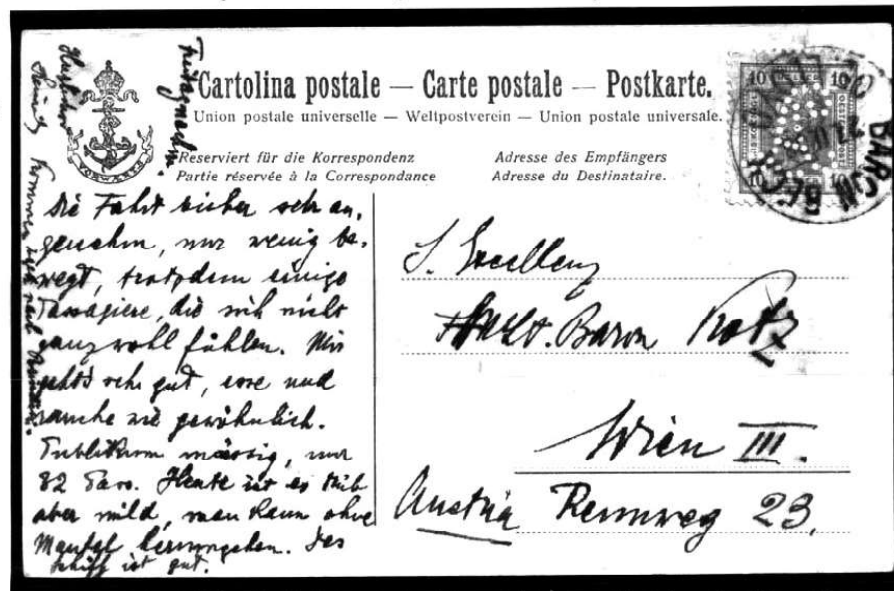 Cartolina postale — Carte postale — Postkarte.
Union postale universelle — Weltpostverein — Union postale universale.
Reserviert für die Korrespondenz
Partie réservée à la Correspondance
Adresse des Empfängers
Adresse du Destinataire.
VORWÄRTS
10 HELLER 10
10 10
BARON
BRUCK
Freitag nachm.
Herzliche
Die Fahrt bisher sehr an,
genehm, nur wenig be,
wegt, trotzdem einige
Passagiere, die sich nicht
ganz wohl fühlen. Mir
geht's sehr gut, esse und
rauche wie gewöhnlich.
Publikum mässig, nur
82 Pass. Heute ist es trüb
aber mild, man kann ohne
Mantel herumgehen. Das
Schiff ist gut.
S. Excellenz
Baron
Wien III.
Austria Rennweg 23.